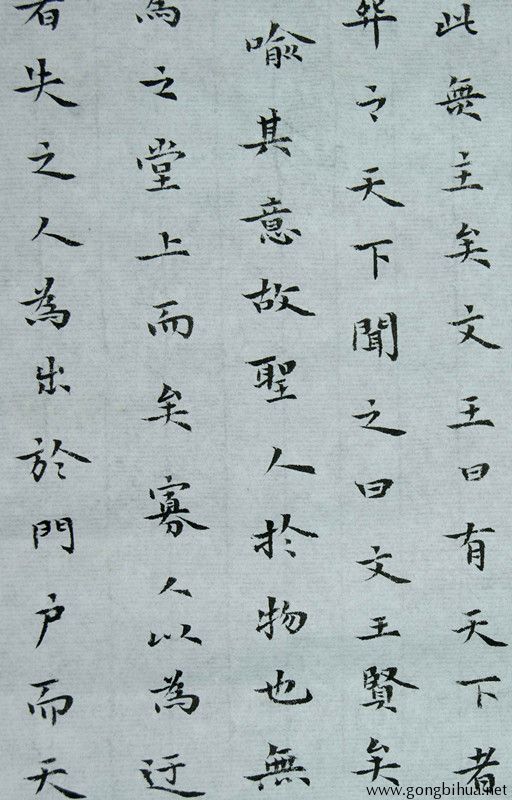 此無主矣文王曰有天下者
葬之天下聞之曰文王賢矣
喻其意故聖人於物也無
為之堂上而矣寡人以為迂
者失之人為出於門户而天
www.gongbihua.net